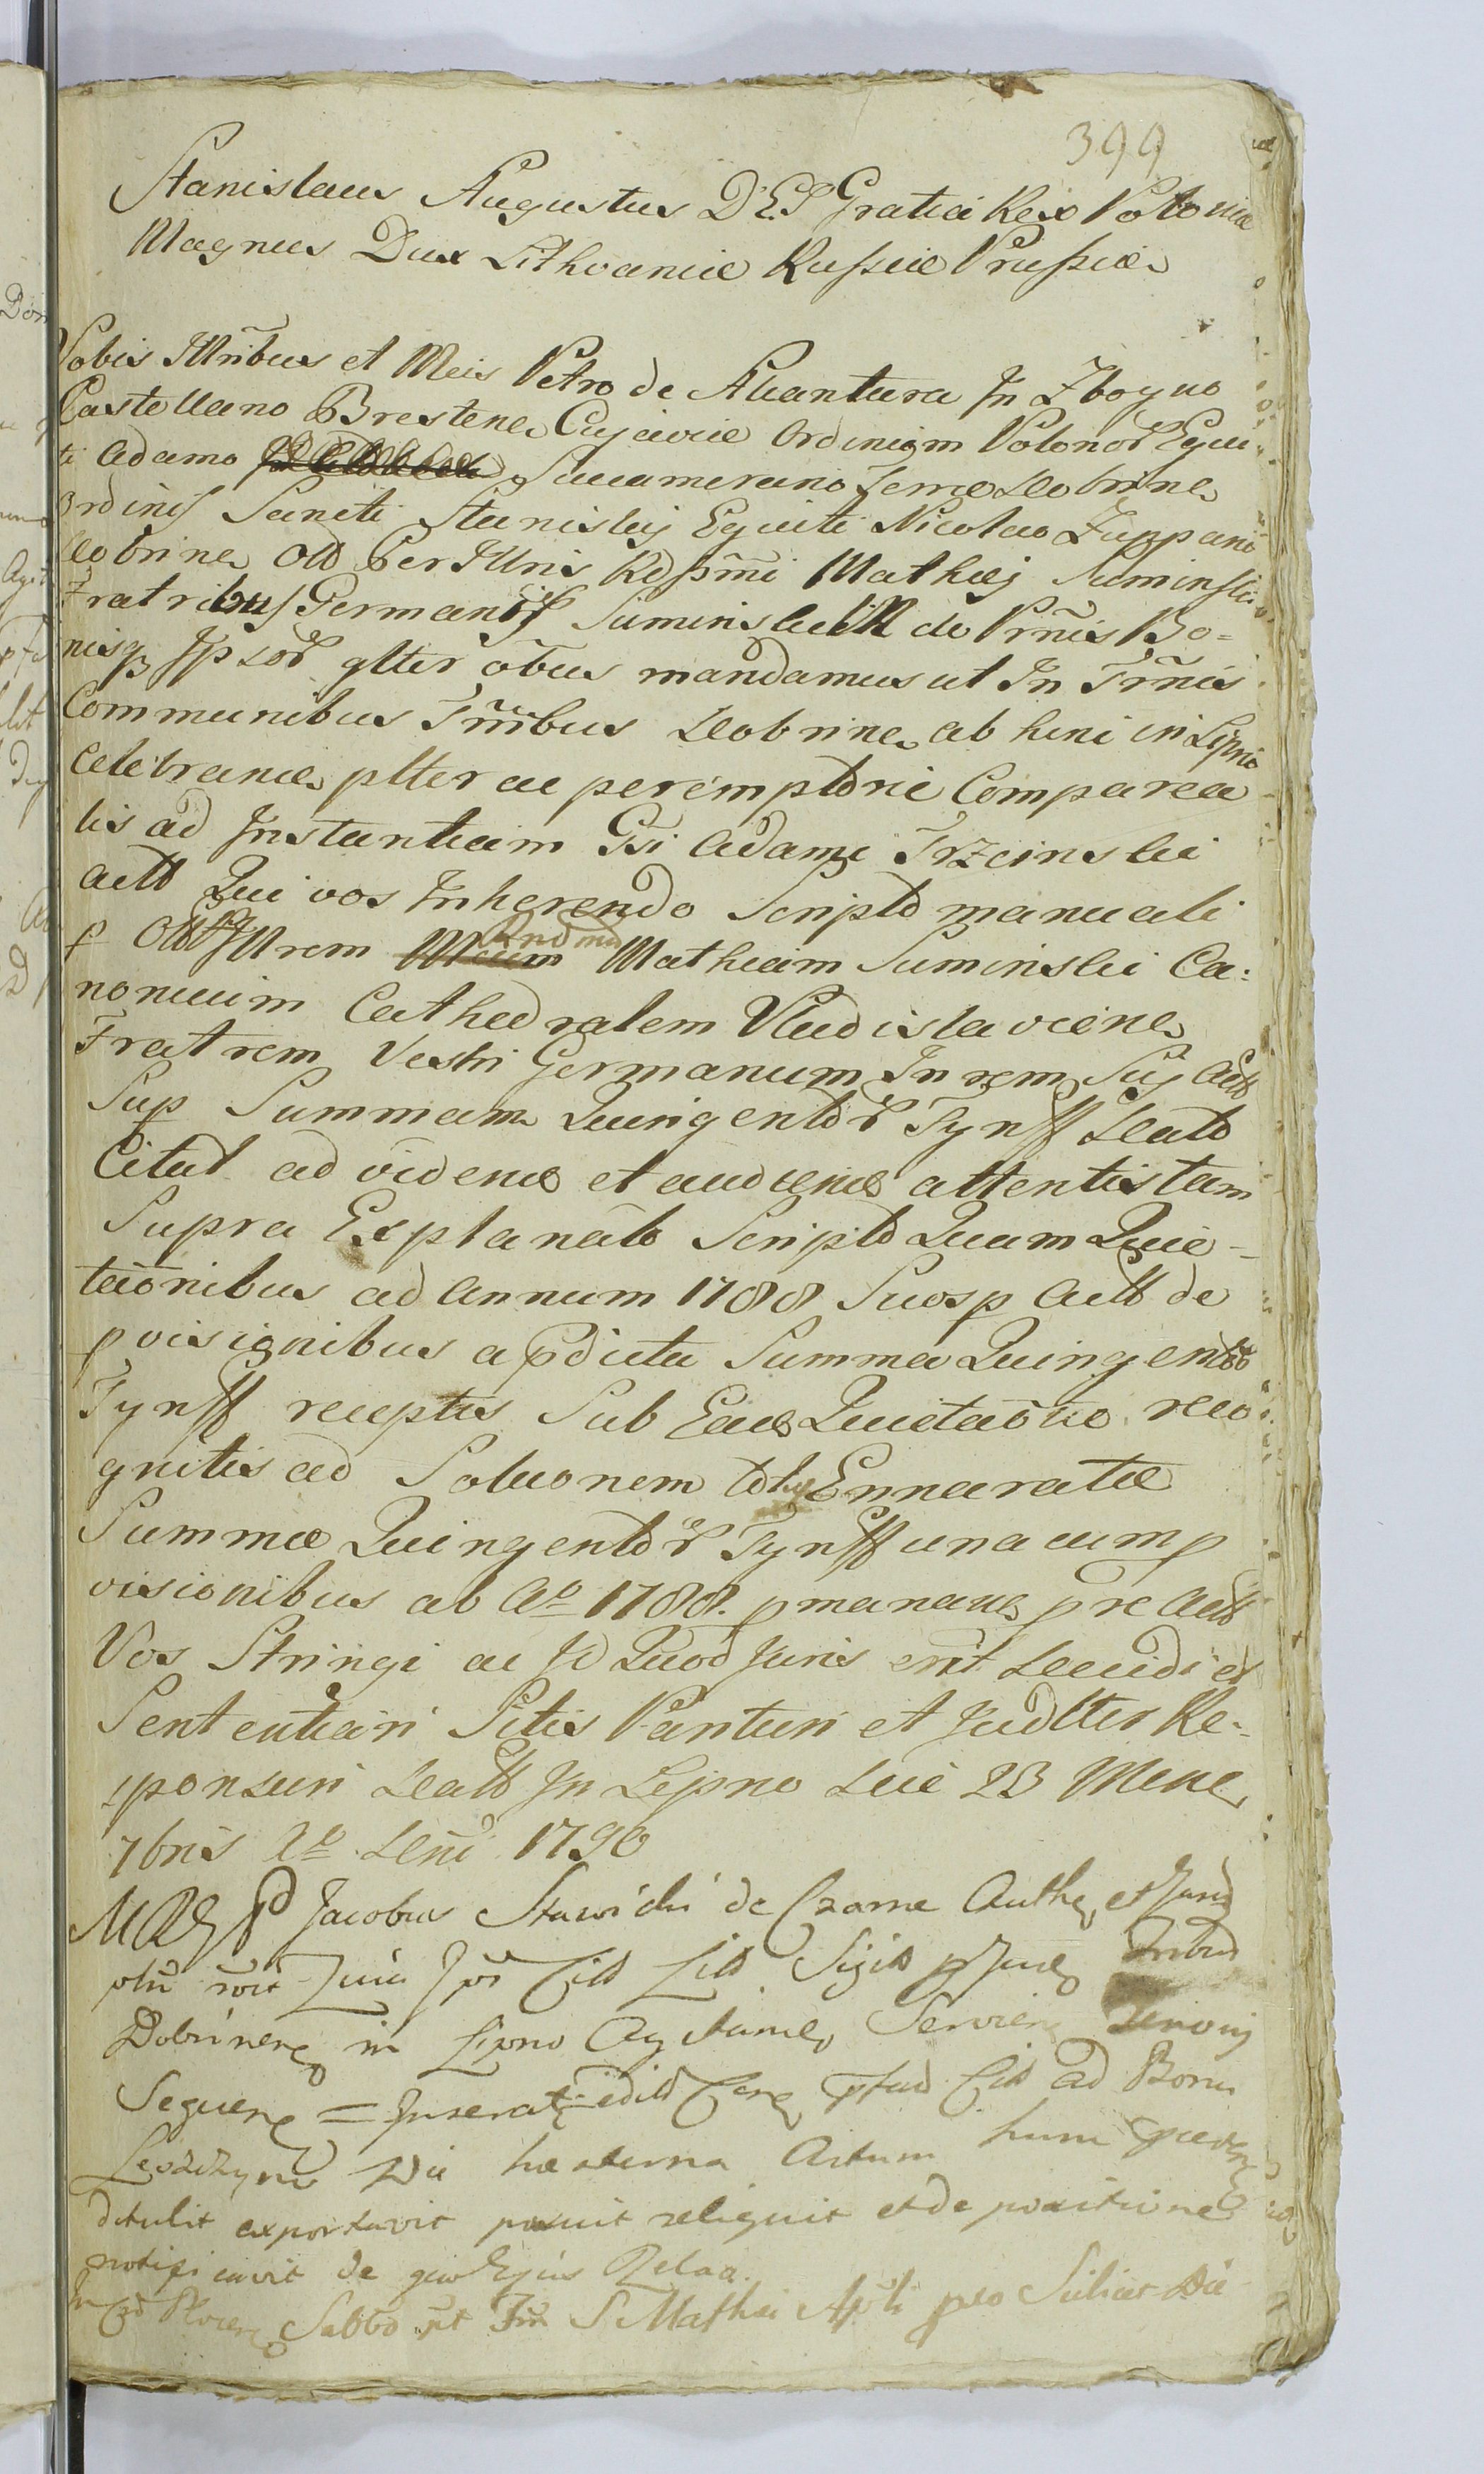 399
Stanislaus Augustus DEI Gratia Rex Poloniæ
Magnus Dux Lithvaniæ Russiæ Prussiæ
Vobis Illribus et Mcis Petro de Alcantara In Zboyno
Castellano Brestene Cujaviæ Ordinum Polonor Equi
ti Adamo Succamerario Terræ Dobrine
Ordinis Sancti Stanislaj Equiti Nicolao Zuppario
Dobrine Olb Per Illris Rdssmi Mathæj Suminski
Fratribus Germanis Suminskim de Prsnis Bo=
nisq Ipsor glter obus mandamus ut In Trnis
Communibus Trribus Dobrine ab hinc in Lipno
Celebrane plter ac peremptorie Comparea
tis ad Instantiam Gsi Adami Trzcinski
Actb Qui vos Inherendo Scripto manuali
p Olb Illrem Rndmu Matheum Suminski Ca=
nonicum Cathedralem Vladislaviene
Fratrem Vestri Germanum In rem Sui Actb
Sup Summam Quingentor Tynff Dato
Citat ad videne et audiene attentis tam
Supra Explanato Scripto Quam Quie=
taonibus ad Annum 1788 Suosp Actb de
pvisionibus a pdicta Summa Quingentor
Tynff receptis Sub Eade Quietaoe reco
gnitis ad Soluonem Ennaratæ
Summæ Quingentor Tynff una cum p
visionibus ab Ao 1788. pmanane pre Actb
Vos Stringi ac Id Quod Juris erit Decidi et
Sententiari Sitis Parituri et Judlter Re=
sponsuri Datt In Lipno Die 23 Mene
7bris Ao Dni 1790
Jacobus Stawicki de Czarne Authe et Jurid
Sigil
Dobrinene in Lipno Agitane Serviene
Sequene = Inserat edidit ad Bona
Die hesterna Actum
detulit exportavit posuit reliquit et de positione
notificavit de quo Ejus Relao.
Sabbo pt S Mathei Apli